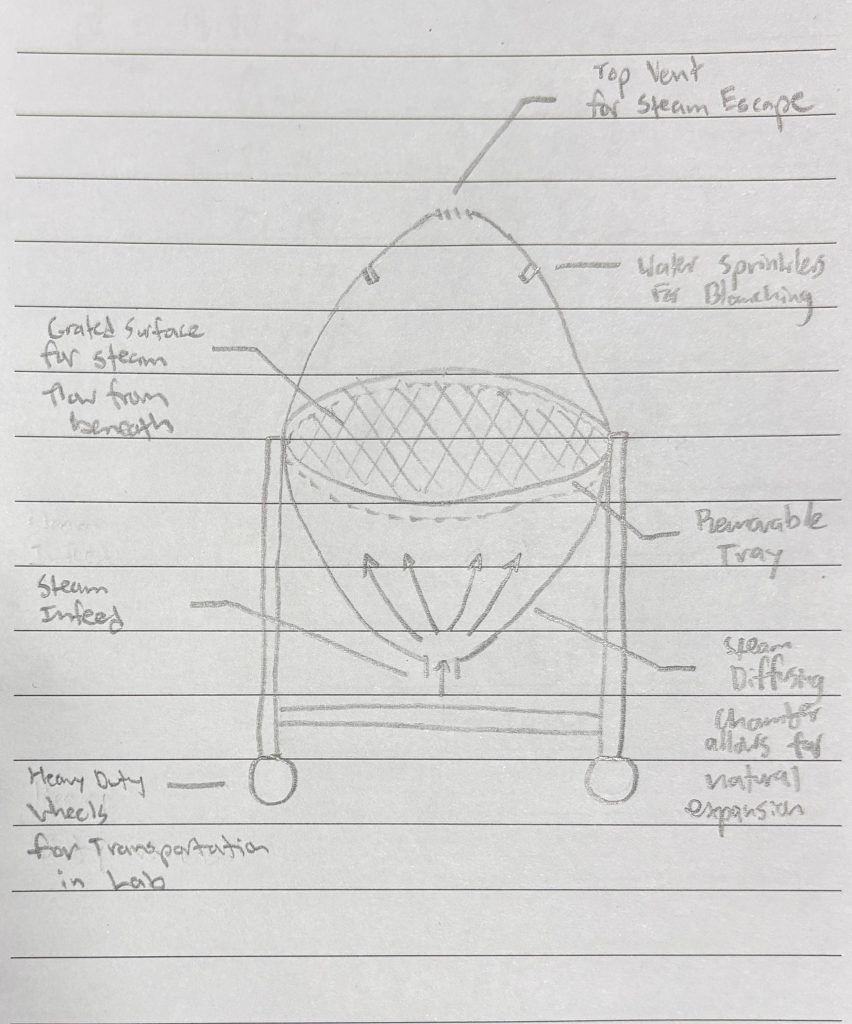 Top Vent
for Steam Escape
Water Sprinklers
For Blanching
Grated Surface
for steam
flow from
beneath
Removable
Tray
Steam
Infeed
Steam
Diffusing
Chamber
allows for
natural
expansion
Heavy Duty
Wheels
for Transportation
in Lab